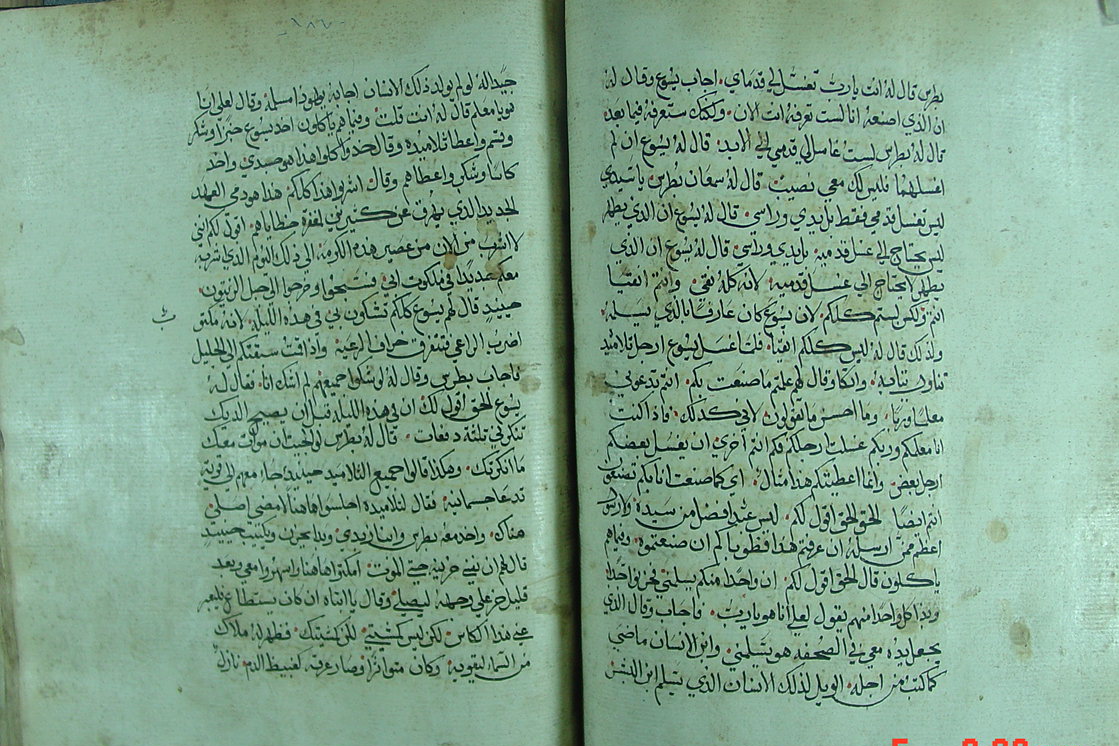 بطرس قال له انت يارب تغسل لي قدماي. اجاب يسوع وقال له
ان الذي اصنعه انا لست تعرفه انت الان. ولكنك ستعرفه فيما بعد
قال له بطرس لست غاسل لي قدمي الي الابد. قال له يسوع ان لم
اغسلهما فليس لك معي نصيب. قال له سمعان بطرس ياسيدي
ليس تغسل قدمي فقط بل يدي وراسي. قال له يسوع ان الذي تطهر
ليس يحتاج الي غسل قدميه بل يدي وراسي قال له يسوع ان الذي
تطهر لا يحتاج الي غسل قدميه. لانه كله نقي. وانتم انقيا
انتم ولكن لستم كلكم. لان يسوع كان عارفا الذي يسلمه
ولذلك قال له ليس كلكم انقيا. فلما غسل يسوع ارجل تلاميذه
تناول ثيابه. واتكا وقال لهم علمتم ماصنعت بكم. انتم تدعوني
معلما وربا. وما احسن ما تقولون. لاني كذلك. فاذا كنت
انا معلمكم وربكم غسلت ارجلكم فكم انتم احري ان يغسل بعضكم
ارجل بعض. وانما اعطيتكم هذا مثال. اي كما صنعت انا بكم تصنعون
انتم ايضا الحق الحق اقول لكم. ليس عبد افضل من سيده ولا رسول
اعظم ممن ارسله ان عرفتم هذا فطوباكم ان صنعتموه. وفيما هم
ياكلون قال الحق اقول لكم. ان واحدا منكم يسلمني فحزنوا جدا
وبدا كل واحد منهم يقول لعلي انا هو يارب. فاجاب وقال الذي
يجعل يده معي في الصحفه هو يسلمني. وابن الانسان ماضي
كما كتب من اجله. الويل لذلك الانسان الذي يسلم ابن البشر
جيدا له لو لم يولد ذلك الانسان اجابه يهوذا مسلمه وقال لعلي انا
هو يا معلم قال له انت قلت. وفيما هم ياكلون اخذ يسوع خبزا وشكر
وقسم واعطا تلاميذه وقال خذوا كلوا هذا هو جسدي واخذ
كاسا وشكر واعطاهم وقال اشربوا هذا كلكم هذا هو دمي العهد
الجديد الذي يهرق عن كثيرين لمغفرة خطاياهم. اقول لكم انني
لا اشرب من الان من عصير هذه الكرمه الي ذلك اليوم الذي اشربه
معكم جديدا في ملكوت ابي. فسبحوا وخرجوا الي جبل الزيتون.
حينيذ قال لهم يسوع كلكم تشكون بي في هذه الليله. لانه مكتوب
اضرب الراعي فتتفرق خراف الرعيه. واذا قمت سبقتكم الي الجليل
فاجاب بطرس وقال له لو شكوا جميعهم لم اشك انا. فقال له
يسوع الحق اقول لك ان في هذه الليله قبل ان يصيح الديك
تنكرني ثلثة دفعات. قال له بطرس لو الجيت ان اموت معك
ما انكرتك. وهكذا قالوا جميع التلاميذ حينيذ جاء معهم الي قرية
تدعا جسمانيه فقال لتلاميذه اجلسوا هاهنا لامضي اصلي
هناك. واخذ معه بطرس وابنا زبدي. وبدا يحزن ويكتيب حينيذ
قال لهم ان نفسي حزينه حتي الموت. امكثوا هاهنا واسهروا معي وبعد
قليل خر علي وجهه ليصلي وقال يا ابتاه ان كان يستطاع فليعبر
عني هذا الكاس. لكن ليس كمشيتي. لكن كمشيتك. فظهر له ملاك
من السماء ليقويه وكان متواترا وصار عرقه كعبيط الدم نازل